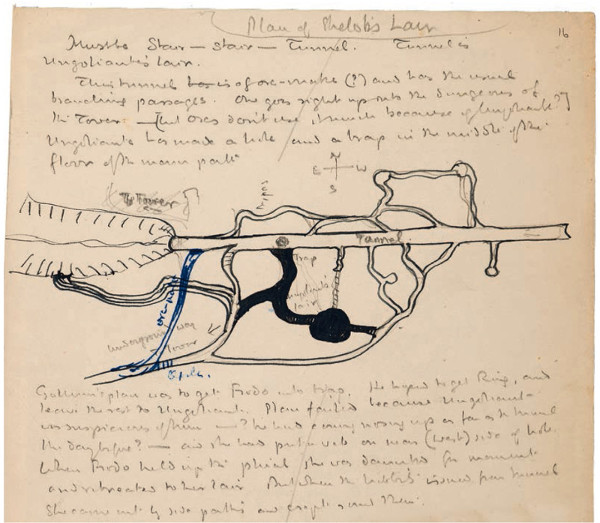 Plan of Shelob's Lair
16
Must be Stair — stair — Tunnel. Tunnel is
Ungoliant's lair.
This tunnel is of orc-make (?) and has the usual
branching passages. One goes right up into the dungeons of
the Tower — [but orcs don't use it much because of Ungoliant?]
Ungoliant has made a hole and a trap in the middle of the
floor of the main path
N
E W
S
The Tower
Tunnel
Trap
Ungoliant's
lair
orc
Underground way
to Tower
Gollum's plan was to get Frodo into trap. He hoped to get Ring, and
leave the rest to Ungoliant. Plan failed because Ungoliant
was suspicious of him — ? he had come nosing up as far as the tunnel
the day before? — and she had put a web on near (west) side of hole.
When Frodo held up the phial she was daunted for moment
and retreated to her lair. But when the hobbits issued from tunnel
she came out by side paths and crept round them.